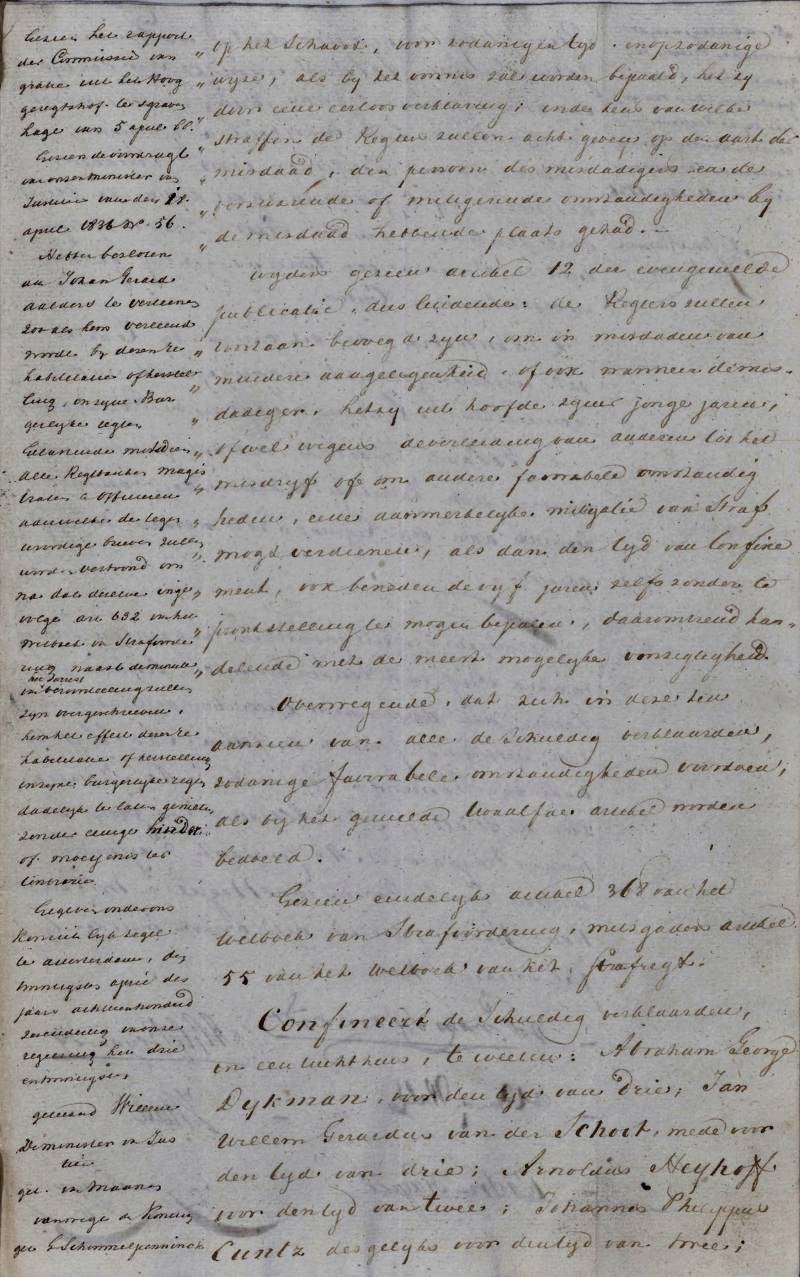 Gezien het rapport
der Commissie van
gratie uit het Hoog
geregtshof te sgraven
hage van 5 april ll.
Gezien de voordragt
van onzen minister van
Justitie van den
april 1836 No. 56.
Hebben besloten
aan Johan Gerard
aalders te verleenen
zoo als hem verleend
wordt by dezen re
habilitatie of herstel
ling, in zyne Bur
gerlyke regten
Gelastende mitsdien
alle Regtbanken magis
traten & officieren
aan welke de tegen
woordige brieven zullen
worden vertoond om
na dat dezelve inge
volge art 632 van het
wetboek van Strafvorde
ring naast de minute
het arrest
van veroordeeling zullen
zyn overgeschreven,
hem het effect dezer re
habilitatie of herstelling
in zyne burgerlyke regten
dadelyk te laten genieten
zonder eenige hinder
of moeyenis ter
contrarie
Gegeven onder ons
Koninklyk zegel
te amsterdam, den
twintigsten april des
jaars achttienhonderd
zesendertig van onze
regeering het drie
entwintigste
geteekend Willem
De minister van Jus
titie
get. van Maanen
vanwege den Koning
get G Schimmelpenninck
op het Schavot, voor zodanigen tyd en op zodanige
wyze, als by het vonnis zal worden bepaald, het zy
door eene eerloos verklaring; in de keus van welke
straffen de Regters zullen acht geven op den aart der
misdaad, den persoon des misdadigers en de
verzwarende of mitigerende omstandigheden by
de misdaad hebbende plaats gehad.
Wyders gezien artikel 12 der evengemelde
publicatie, dus luidende: de Regters zullen
voortaan bevoegd zyn, om in misdaden van
mindere aangelegenheid, of ook wanneer de mis-
dadiger, hetzy uit hoofde zyner jonge jaren,
ofwel wegens de verleiding van anderen tot het
misdryf of om andere favorabele omstandig
heden, eene aanmerkelyke mitigatie van Straf
mogt verdienen, als dan den tyd van Confine
ment, ook beneden de vyf jaren zelfs zonder te
pronkstelling te mogen bepalen, daaromtrend han-
delende met de meest mogelyke voorzigtigheid
Overwegende, dat zich in deze ten
aanzien van alle de Schuldig verklaarden,
zodanige favorabele omstandigheden voordoen,
als by het gemelde twaalfde artikel worden
bedoeld.
Gezien eindelyk artikel 368 van het
Wetboek van Strafvordering, mitsgaders artikel
55 van het Wetboek van het Strafregt.
Confineert de Schuldig verklaarden,
in een tuchthuis, te weten: Abraham George
Dykman, voor den tyd van drie; Jan
Willem Gerardus van der Schoot, mede voor
den tyd van drie; Arnoldus Heykoff
voor den tyd van twee; Johannes Philippus
Cuntz desgelyks voor den tyd van twee;